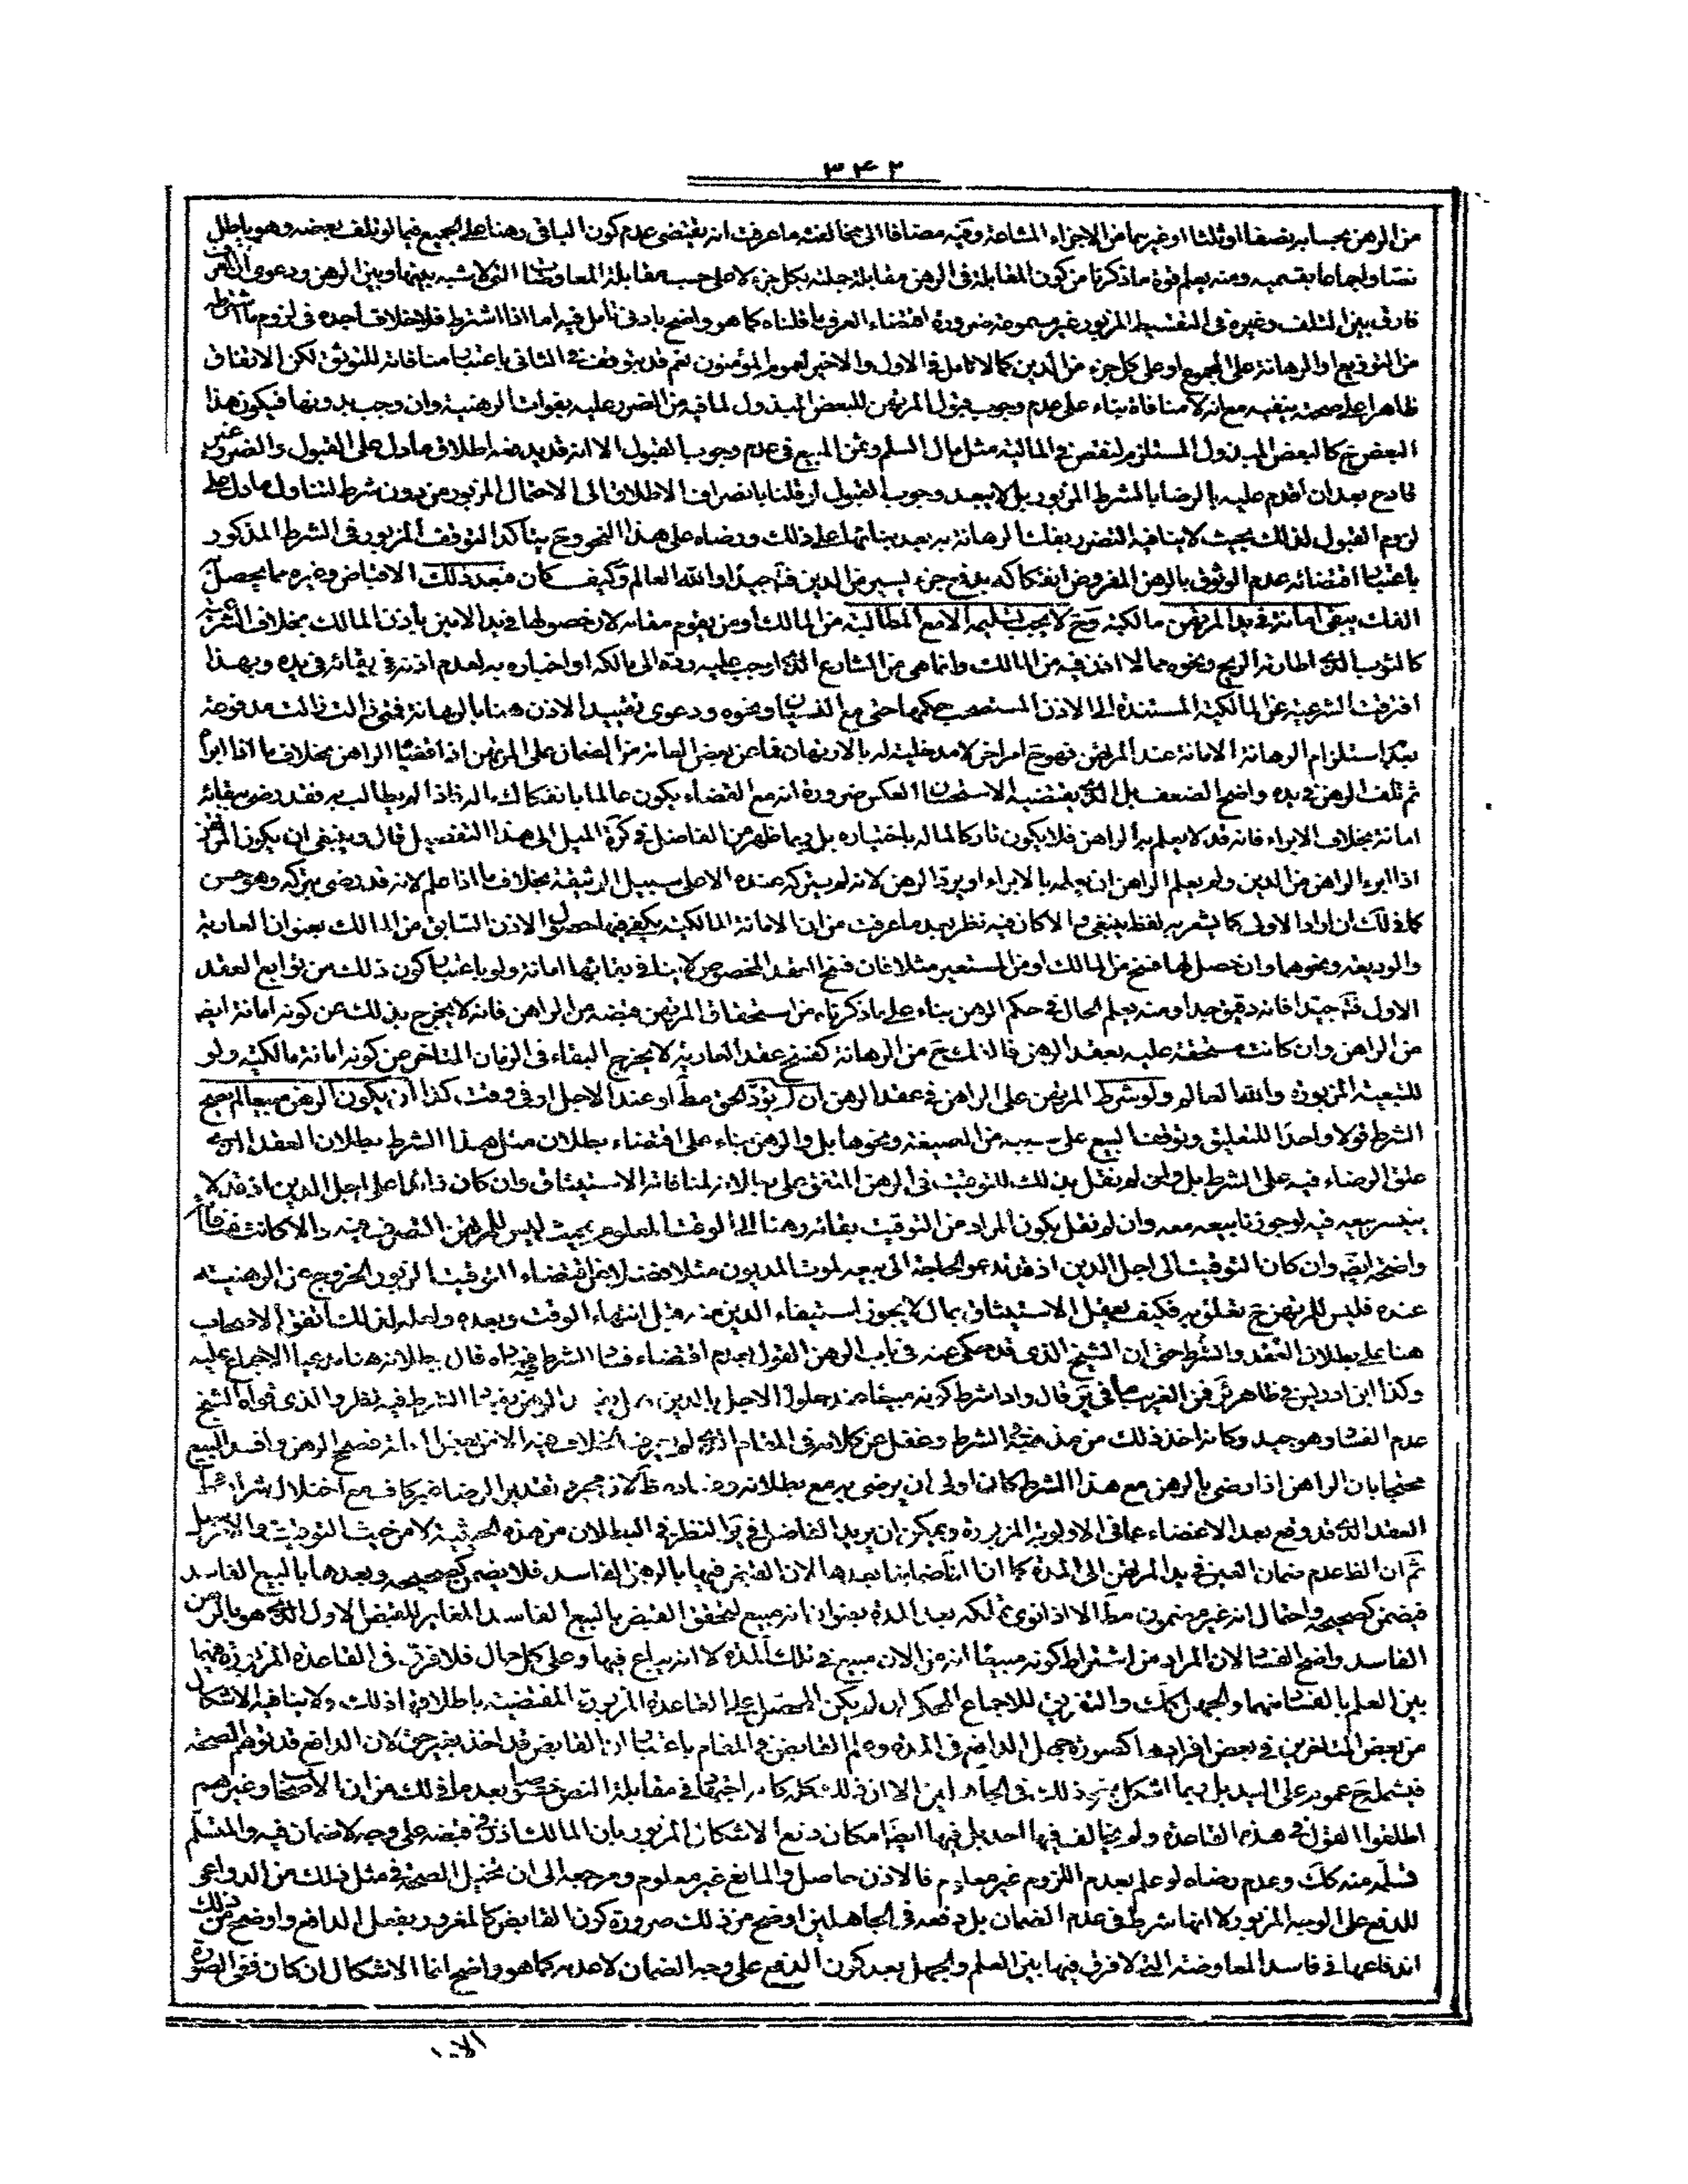 ٣٤٢
من الرهن بحسابه نصفا او ثلثا او غيرهما من الاجزاء المشاعة وفيه مضافا الى مخالفته ما عرفت انه يقتضى عدم كون الباقى رهنا على الجميع فيما لو تلف بعضه وهو باطل
نصا واجماعا بقسميه ومنه يعلم قوة ما ذكرنا من كون المقابلة فى الرهن مقابلة جملة بكل جزء لا على حسب مقابلة المعاوضات التى لا شبه بينها وبين الرهن ودعوى ان العرف
فارق بين التلف وغيره فى التقسيط المزبور غير مسموعة ضرورة اقتضاء العرف ما قلناه كما هو واضح بادنى تامل فيه اما اذا اشترط فلا خلاف اجده فى لزوم ما اشترطه
من التوزيع او الرهانة على المجموع او على كل جزء من الدين كما لا تامل فى الاول والاخير لعموم المؤمنون نعم قد يتوقف فى الثانى باعتبار منافاته للتوثق لكن الاتفاق
ظاهرا على صحته ينفيه مع انه لا منافاة بناء على عدم وجوب قبول المرتهن للبعض المبذول لما فيه من الضرر عليه بفوات الرهنية وان وجب بدونها فيكون هذا
البعض ح كالبعض المبذول المستلزم لنقص فى المالية مثل مال السلم وثمن المبيع فى عدم وجوب القبول الا انه قد يدفعه اطلاق ما دل على القبول والضرر غير
قادح بعد ان اقدم عليه بالرضا بالشرط المزبور بل لا يبعد وجوب القبول ان قلنا بانصراف الاطلاق الى الاحتمال المزبور من دون شرط لتناول ما دل على
لزوم القبول لذلك بحيث لا ينافيه التضرر بفك الرهانة به بعد بنائها على ذلك ورضاه على هذا النحو وح يتاكد التوقف المزبور فى الشرط المذكور
باعتبار اقتضائه عدم الوثوق بالرهن المفروض انفكاكه بدفع جزء يسير من الدين فتأمل جيدا والله العالم وكيف كان فبعد ذلك الاقباض وغيره مما يحصل به
الفك يبقى امانة فى يد المرتهن مالكية وح لا يجب تسليمه الا مع المطالبة من المالك او من يقوم مقامه لان حصولها فى يد الامين باذن المالك بخلاف الشرعية
كالثوب الذى اطارته الريح ونحوه مما لا اذن فيه من المالك وانما هى من الشارع الذى اوجب عليه رده الى مالكه او اخباره به لعدم اذنه فى بقائه فى يده وبهذا
افترقت الشرعية عن المالكية المستندة الى الاذن المستصحب حكمها حتى مع النسيان ونحوه ودعوى تقييد الاذن هنا بالرهانة فمتى زالت زالت مدفوعة
بمنع استلزام الرهانة الامانة عند المرتهن فهو ح امر اخر لا مدخلية له بالارتهان فما عن بعض العامة من الضمان على المرتهن اذا قضاه الراهن بخلاف ما اذا ابراه
ثم تلف الرهن فى يده واضح الضعف بل الذى يقتضيه الاستحسان العكس ضرورة انه مع القضاء يكون عالما بانفكاك ماله فاذا لم يطالب به فقد رضى ببقائه
امانة بخلاف الابراء فانه قد لا يعلم به الراهن فلا يكون تاركا لماله باختياره بل ربما ظهر من الفاضل فى كرة الميل الى هذا التفصيل قال وينبغى ان يكون المرتهن
اذا ابرء الراهن من الدين ولم يعلم الراهن ان يعلمه بالابراء او يرد الرهن لانه لم يتركه عنده الا على سبيل الوثيقة بخلاف ما اذا علم لانه قد رضى بتركه وهو حسن
كما فى لك ان اراد الاولى كما يشعر به لفظ ينبغى والا كان فيه نظر بعد ما عرفت من ان الامانة المالكية يكفى فيها حصول الاذن السابق من المالك بعنوان العارية
والوديعة ونحوهما وان حصل لها فسخ من المالك او من المستعير مثلا فان فسخ العقد المخصوص لا ينافى بقائها امانة ولو باعتبار كون ذلك من توابع العقد
الاول فتأمل جيدا فانه دقيق جدا ومنه يعلم الحال فى حكم الرهن بناء على ما ذكرناه من استحقاق المرتهن قبضه من الراهن فانه لا يخرج بذلك عن كونه امانة ايضا
من الراهن وان كانت مستحقة عليه بعقد الرهن فالفك ح من الرهانة كفسخ عقد العارية لا يخرج البقاء فى الزمان المتاخر عن كونه امانة مالكية ولو
للتبعية المزبورة والله العالم ولو شرط المرتهن على الراهن فى عقد الرهن ان لم يؤد الحق مطلقا او عند الاجل او فى وقت كذا ان يكون الرهن مبيعا لم يصح
الشرط قولا واحدا للتعليق وتوقف البيع على سببه من الصيغة ونحوها بل والرهن بناء على اقتضاء بطلان مثل هذا الشرط بطلان العقد الذى
علق الرضاء فيه على الشرط بل وان لم نقل بذلك للتوقيت فى الرهن المتفق على بطلانه لمنافاته الاستيثاق وان كان زائدا على اجل الدين اذ قد لا
يتيسر بيعه فيه لو جوزنا بيعه معه وان لم نقل بكون المراد من التوقيت بقائه رهنا الى الوقت المعلوم بحيث ليس للمرتهن التصرف فيه والا كانت منافاته
واضحة ايضا وان كان التوقيت الى اجل الدين اذ قد تدعو الحاجة الى بيعه لموت المديون مثلا فضلا عن اقتضاء التوقيت المزبور الخروج عن الرهنية
عنده فليس للمرتهن ح تعلق به فكيف يعقل الاستيثاق بمال لا يجوز استيفاء الدين منه قبل انتهاء الوقت وبعده ولعله لذلك اتفق الاصحاب
هنا على بطلان العقد والشرط حتى ان الشيخ الذى قد حكى عنه فى باب الرهن القول بعدم اقتضاء فساد الشرط فساده قال ببطلانه هنا مدعيا الاجماع عليه
وكذا ابن ادريس فى ظاهر ئر فمن الغريب ما فى ير قال واذا شرط كونه مبيعا عند حلول الاجل بالدين الرهن بفساد الشرط فيه نظر والذى قواه الشيخ
عدم الفساد وهو جيد وكانه اخذ ذلك من مذهبه فى الشرط وغفل عن كلامه فى المقام الذى لم يعرف الخلاف فيه الا من بعض العامة فصحح الرهن وافسد البيع
محتجا بان الراهن اذا رضى بالرهن مع هذا الشرط كان اولى ان يرضى به مع بطلانه وفساده ظاهر لان مجرد تقدير الرضا غير كاف مع اختلال شرائط
العقد الذى قد وقع بعد الاغضاء عما فى الاولوية المزبورة ويمكن ان يريد الفاضل فى ير النظر فى البطلان من هذه الحيثية لا من حيث التوقيت
ثم ان الظ عدم ضمان العين فى يد المرتهن الى المدة كما ان الظ ضمانها بعدها لان القبض فيها بالرهن الفاسد فلا يضمن كصحيحه وبعدها بالبيع الفاسد
فيضمن كصحيحه واحتمال انه غير مضمون مطلقا الا اذا نوى تملكه بعد المدة بعنوان انه مبيع لتحقق القبض بالبيع الفاسد المغاير للقبض الاول الذى هو بالرهن
الفاسد واضح الفساد لان المراد من اشتراط كونه مبيعا انه من الان مبيع فى تلك المدة لا انه يباع فيها وعلى كل حال فلا فرق فى القاعدة المزبورة فيهما
بين العلم بالفساد منهما والجهل كك والتفريق للاجماع المحكى ان لم يكن المحصل على القاعدة المزبورة المقتضية باطلاقها ذلك ولا ينافيه الاشكال
من بعض المتاخرين فى بعض افرادها كصورة جهل الدافع فى المدة وعلم القابض فى المقام باعتبار ان القابض قد اخذ بغير حق لان الدافع قد توهم الصحة
فيشمله ح عموم على اليد بل ربما اشكل ذلك فى الجاهلين الا ان ذلك كله كالاجتهاد فى مقابلة النص خصوصا بعد ما فى لك من ان الاصحاب وغيرهم
اطلقوا القول فى هذه القاعدة ولم يخالف فيها احد بل فيها ايضا امكان دفع الاشكال المزبور بان المالك اذن فى قبضه على وجه لا ضمان فيه والمتسلم
تسلمه منه كك وعدم رضاه لو علم بعدم اللزوم غير معلوم فالاذن حاصل والمانع غير معلوم ومرجعه الى ان تخيل الصحة فى مثل ذلك من الدواعى
للدفع على الوجه المزبور لا انها شرط فى عدم الضمان بل دفعه فى الجاهلين اوضح من ذلك ضرورة كون القابض كالمغرور بفعل الدافع واوضح من ذلك
اندفاعها فى فاسد المعاوضة التى لا فرق فيها بين العلم والجهل بعد كون الدفع على وجه الضمان لا عدمه كما هو واضح انما الاشكال ان كان ففى الصورة
الاولى